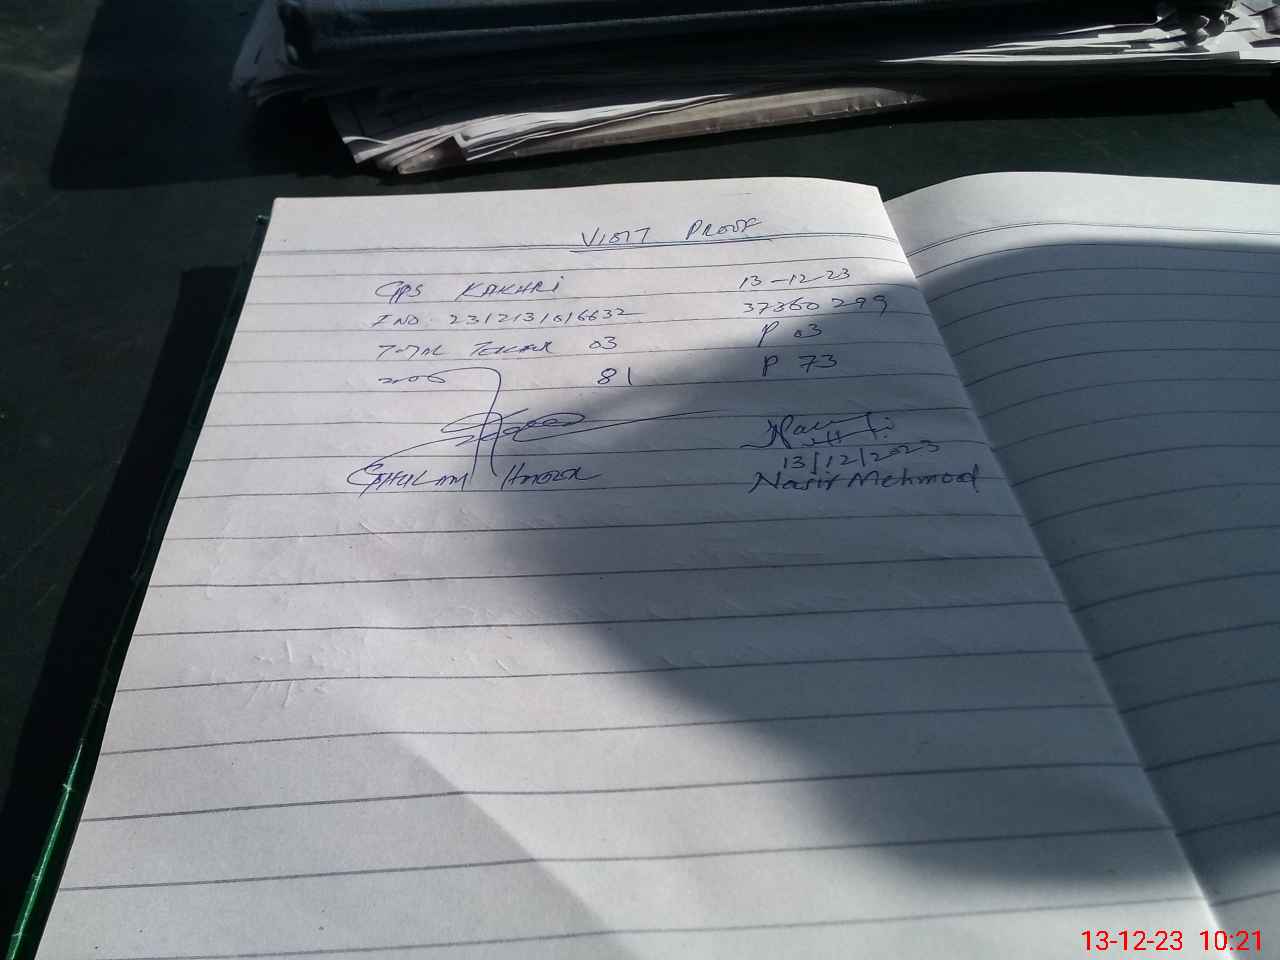 VISIT PROOF
GPS KAKHRI 13-12-23
I NO. 2312131016632 37360299
TOTAL TEACHER 03 P 03
81 P 73
13/12/2023
GHULAM HAIDER Nasir Mehmood
13-12-23 10:21